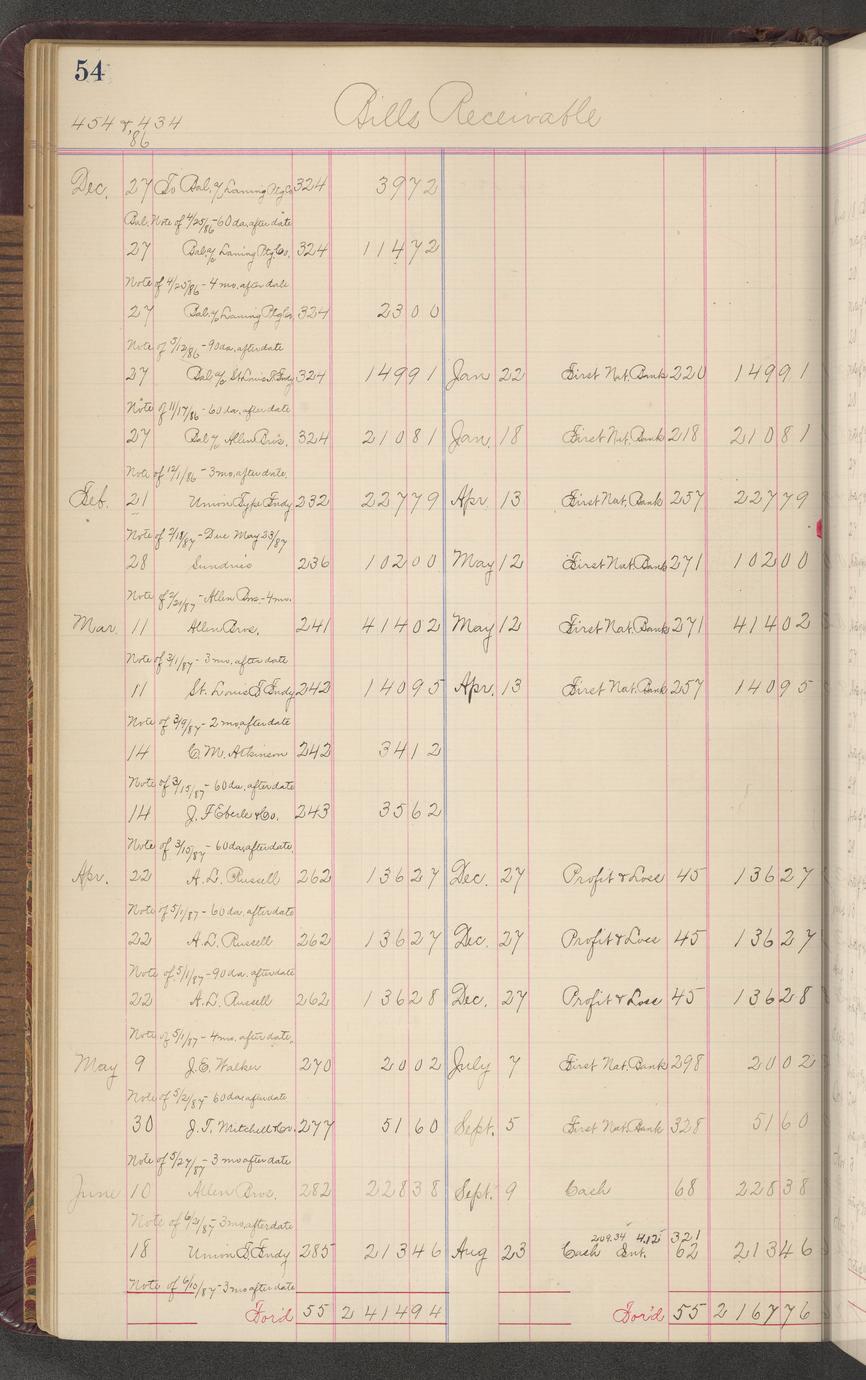 54
Bills Receivable
454 & 434
'86
Dec. 27 To Bal. % Laning Ptg Co 324 39 72
Bal. Note of 4/25/86 - 60 da. after date
27 Bal % Laning Ptg. Co. 324 114 72
Note of 4/25/86 - 4 mo. after date
27 Bal. % Laning Ptg Co 324 23 00
Note of 5/12/86 - 90 da. after date
27 Bal % St. Louis T. Fndy 324 149 91 Jan 22 First Nat. Bank 220 149 91
Note of 11/17/86 - 60 da. after date
27 Bal % Allen Bro's. 324 210 81 Jan. 18 First Nat. Bank 218 210 81
Note of 12/1/86 - 3 mo. after date.
Feb. 21 Union Type Fndy 232 227 79 Apr 13 First Nat. Bank 257 227 79
Note of 2/18/87 - Due May 23/87
28 Sundries 236 102 00 May 12 First Nat. Bank 271 102 00
Note of 2/21/87 - Allen Bros - 4 mo.
Mar. 11 Allen Bros. 241 414 02 May 12 First Nat. Bank 271 414 02
Note of 3/1/87 - 3 mo. after date
11 St. Louis T Fndy 242 140 95 Apr. 13 First Nat. Bank 257 140 95
Note of 3/9/87 - 2 mo. after date
14 C. M. Atkinson 242 34 12
Note of 3/15/87 - 60 da. after date
14 J. F Eberle & Co. 243 35 62
Note of 3/10/87 - 60 da. after date.
Apr. 22 A. L. Russell 262 136 27 Dec. 27 Profit & Loss 45 136 27
Note of 5/1/87 - 60 da. after date
22 A. L. Russell 262 136 27 Dec. 27 Profit & Loss 45 136 27
Note of 5/1/87 - 90 da. after date
22 A. L. Russell 262 136 28 Dec. 27 Profit & Loss 45 136 28
Note of 5/1/87 - 4 mo. after date.
May 9 J. E. Walker 270 20 02 July 7 First Nat. Bank 298 20 02
Note of 5/2/87 - 60 da after date
30 J. T. Mitchell & Co. 277 51 60 Sept. 5 First Nat. Bank 328 51 60
Note of 5/27/87 - 3 mo after date
June 10 Allen Bros. 282 228 38 Sept. 9 Cash 68 228 38
Note of 6/2/87 - 3 mo after date
209.34 4.12 321
18 Union T Fndy 285 213 46 Aug 23 Cash Int. 62 213 46
Note of 6/10/87 - 3 mo after date
For'd 55 2414 94 For'd 55 2167 76